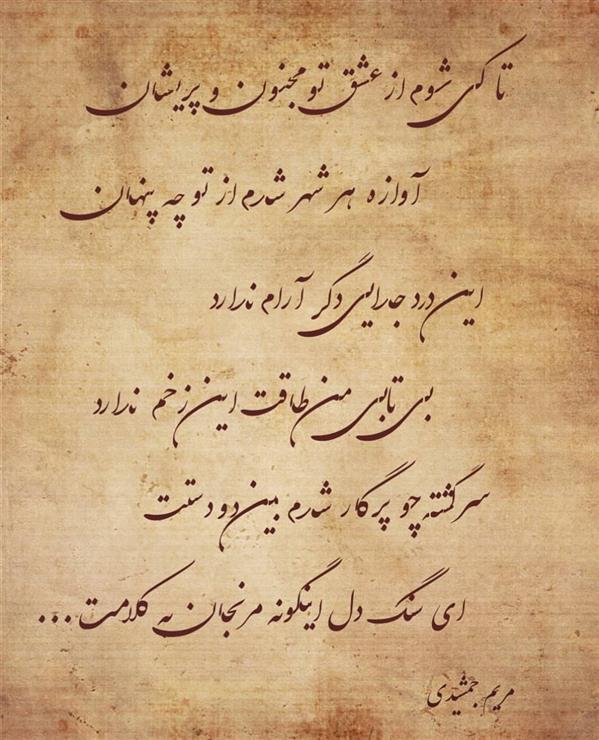 تا کی شوم از عشق تو مجنون و پریشان
آوازه هر شهر شدم از تو چه پنهان
این درد جدایی دگر آرام ندارد
بی تابی من طاقت این زخم ندارد
سرگشته چو پرگار شدم بین دو دستت
ای سنگ دل اینگونه مرنجان به کلامت...
مریم جمشیدی